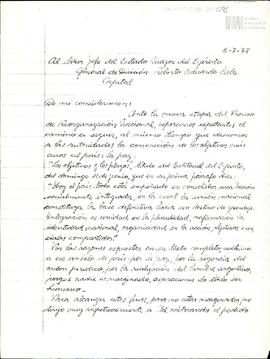 6-7-78
Al Señor Jefe del Estado Mayor del Ejército
General de División Roberto Eduardo Viola
Capital
De mi consideración:
Ante la nueva etapa del Proceso
de Reorganización Nacional, esperamos expectantes el
camino a seguir, al mismo tiempo que deseamos
a las autoridades la concreción de los objetivos más
caros al país: la paz.
"Los objetivos y las pautas", título del Editorial del Ejército,
del domingo de junio, que en su primer párrafo dice:
"Hoy el país todo está empeñado en consolidar una Nación
socialmente integrada, en la cual la unión nacional
constituya la base definitiva hacia un destino de grandeza.
Integración es unidad en la pluralidad, reafirmación de la
identidad nacional, organicidad en la acción, objetivos esen-
ciales compartidos."
Por las razones expuestas en su título completo, adhiero
a ese anhelo de país y a por la vigencia del
orden jurídico, por la realización del hombre argentino,
porque nadie es marginado, aspiraciones de todo ser
humano.
Para alcanzar estos fines, para no estar marginados me
dirijo muy respetuosamente a Ud. reiterando el pedido